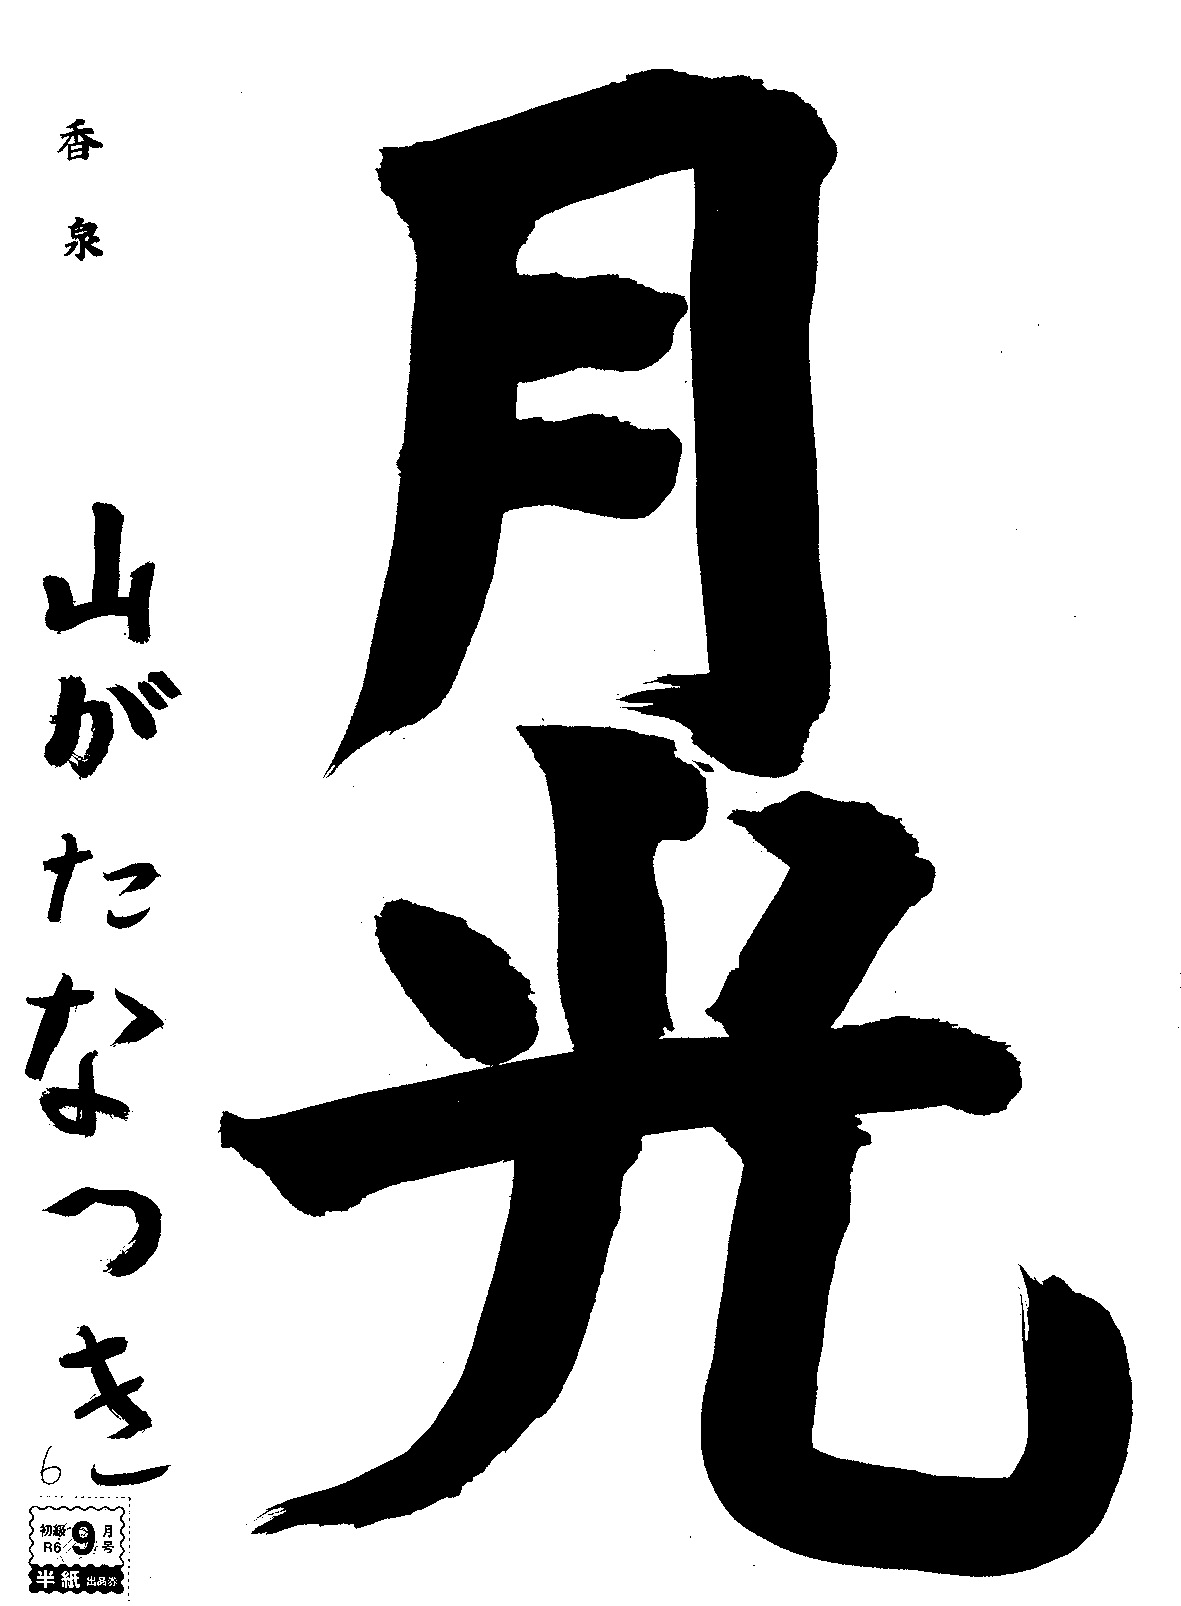 月光
香泉
山がたなつき
6
初級 9月号
R6
半紙 出品券